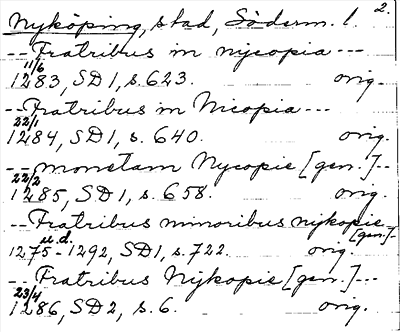 Nyköping, stad, Söderm. l. 2.
-- Fratribus in nycopia ---
11/6
1283, SD1, s. 623. orig.
-- Fratribus in Nicopia ---
22/1
1284, SD1, s. 640. orig.
-- monetam Nycopie [gen.]--
22/2
1285, SD1, s. 658. orig.
-- Fratribus minoribus nykopie
[gen.]-
u.d.
1275-1292, SD1, s. 722. orig.
-- Fratribus Nykopie [gen.]--
23/4
1286, SD2, s. 6. orig.